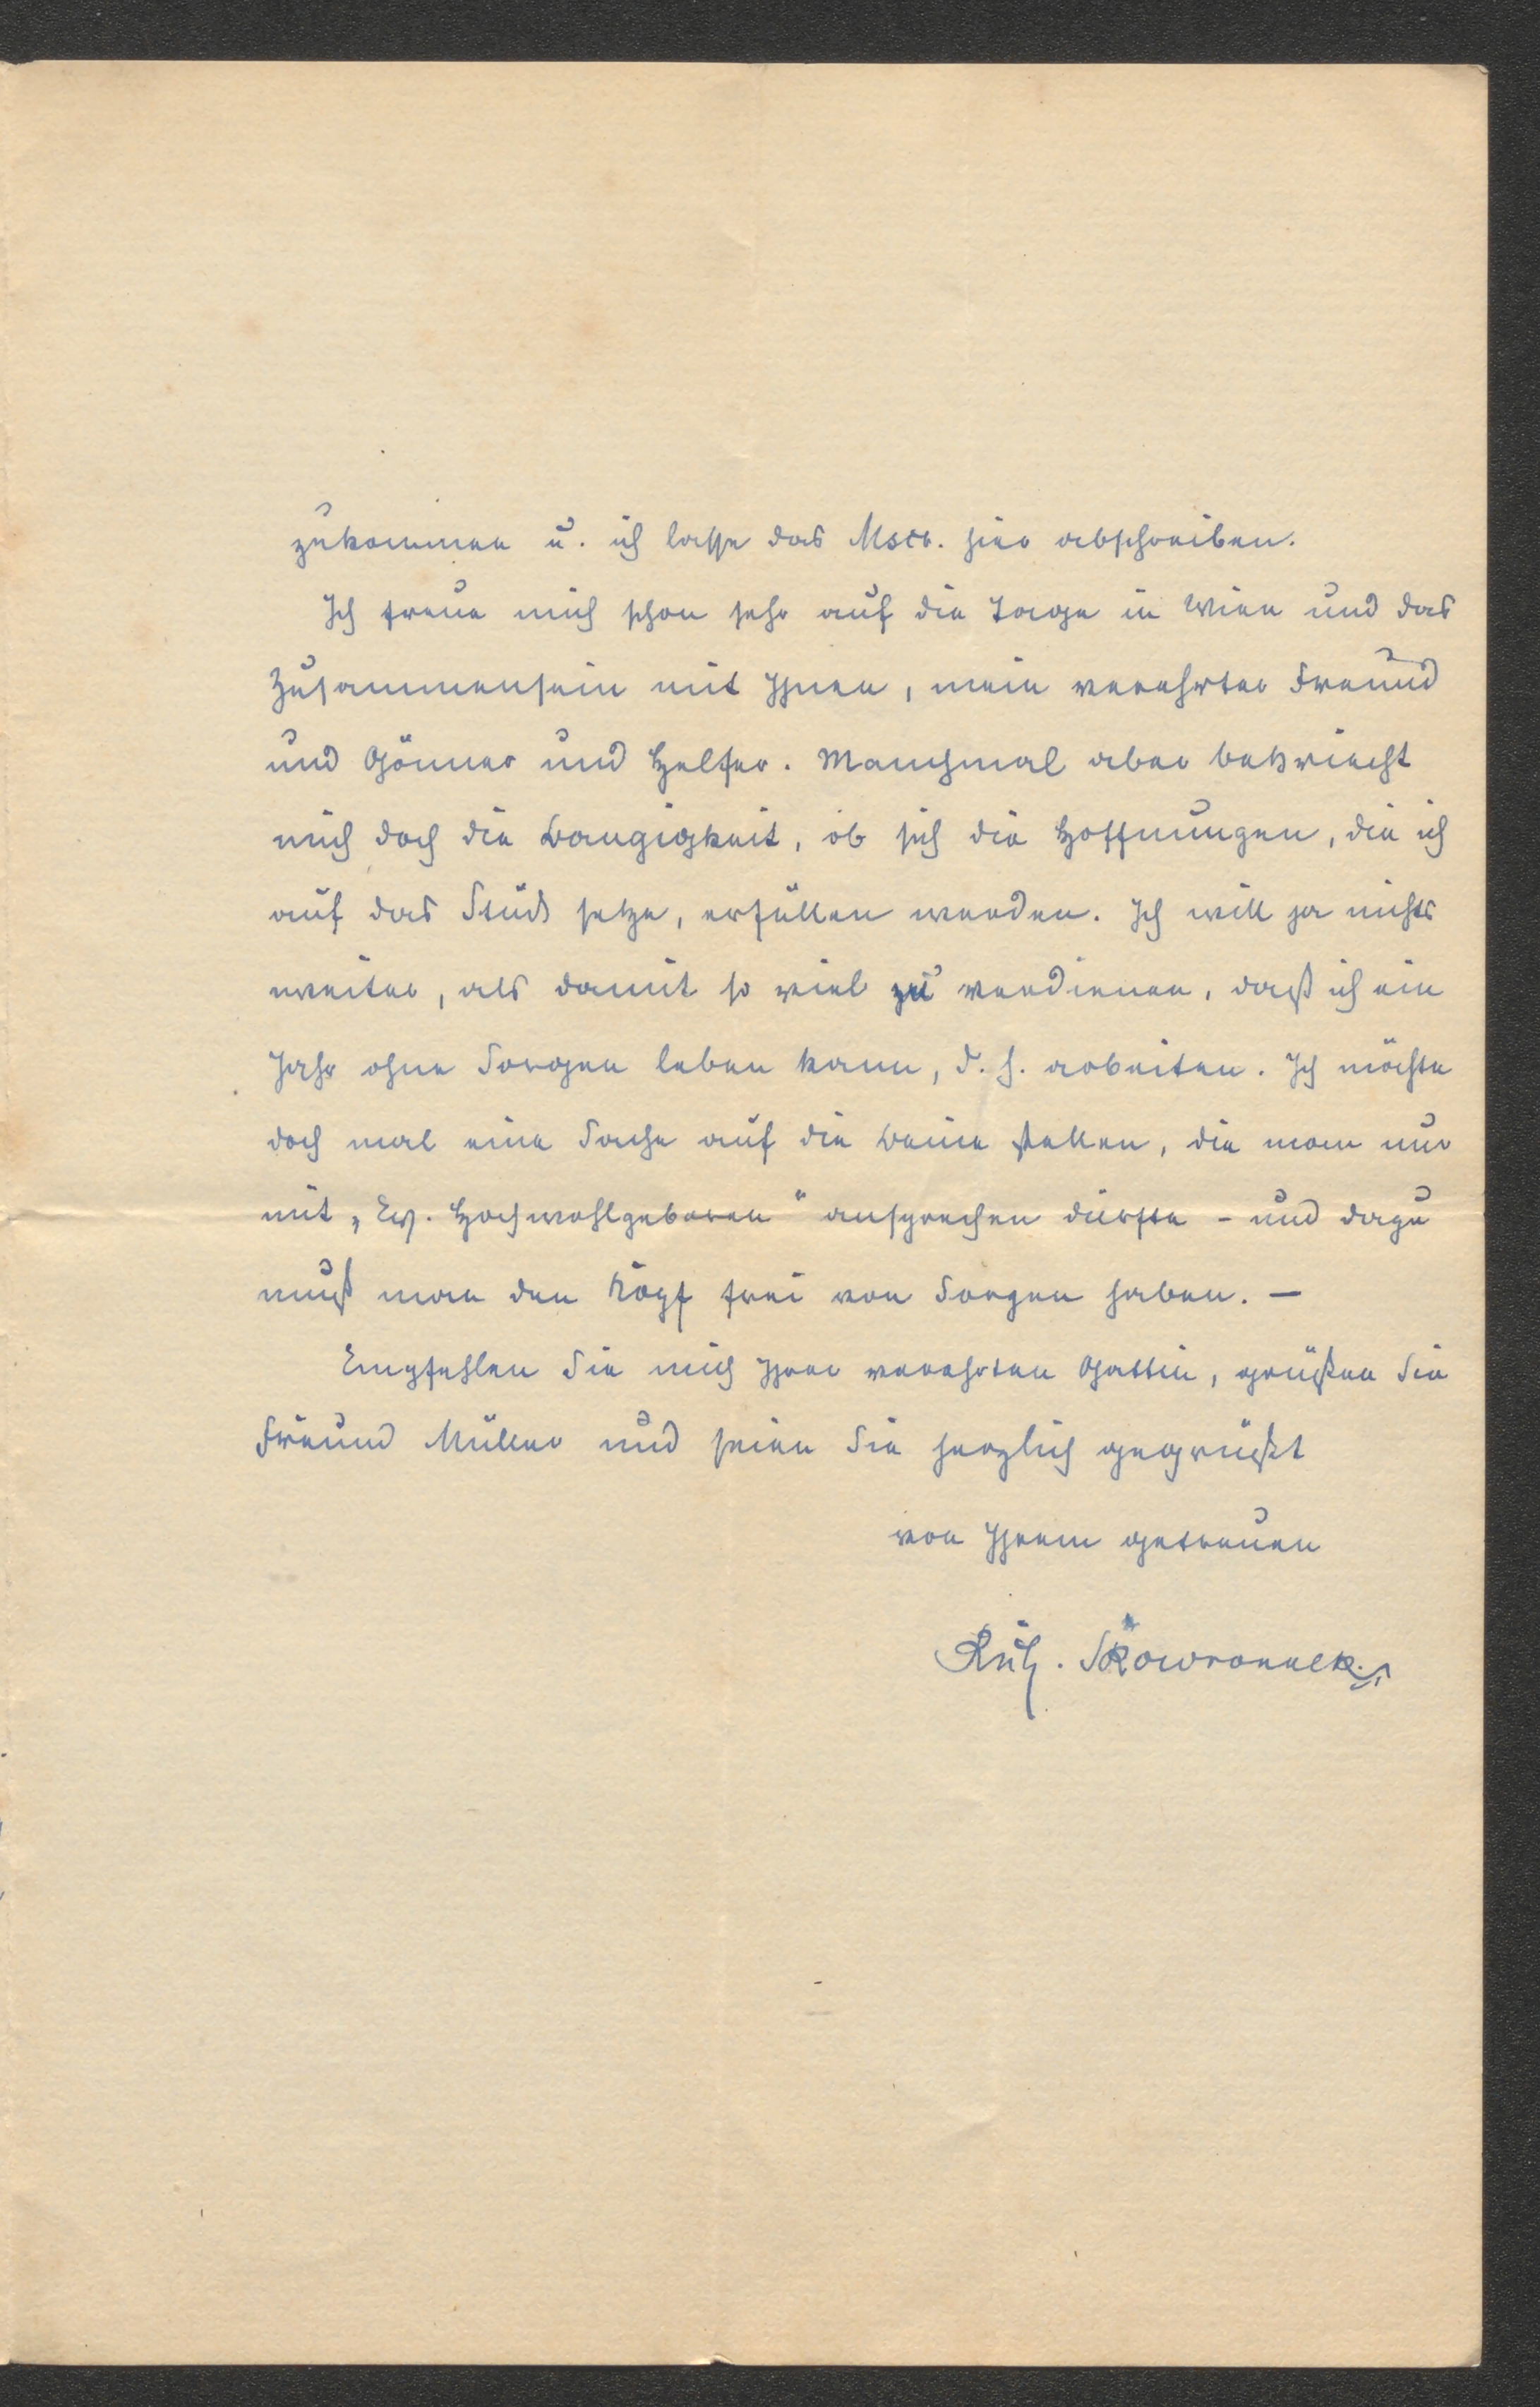 zukommen u. ich lasse das Mscr. hier abschreiben.
Ich freue mich schon sehr auf die Tage in Wien und das
Zusammensein mit Ihnen, mein verehrter Freund
und Gönner und Helfer. Manchmal aber bekriecht
mich doch die Bangigkeit, ob sich die Hoffnungen, die ich
auf das Stück setze, erfüllen werden. Ich will ja nichts
weiter, als damit so viel zu verdienen, daß ich ein
Jahr ohne Sorgen leben kann, d. h. arbeiten. Ich möchte
doch mal eine Sache auf die Beine stellen, die man nur
mit „Ew. Hochwohlgeboren“ ansprechen dürfte – und dazu
muß man den Kopf frei von Sorgen haben. –
Empfehlen Sie mich Ihrer verehrten Gattin, grüßen Sie
Freund Müller und seien Sie herzlich gegrüßt
von Ihrem getreuen
Rich. Skowronnek.